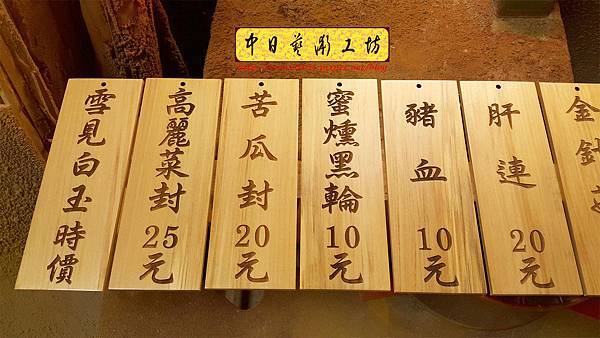 中日藝彫工坊
雪見白玉時價
高麗菜封25元
苦瓜封20元
蜜燻黑輪10元
豬血10元
肝連20元
金針